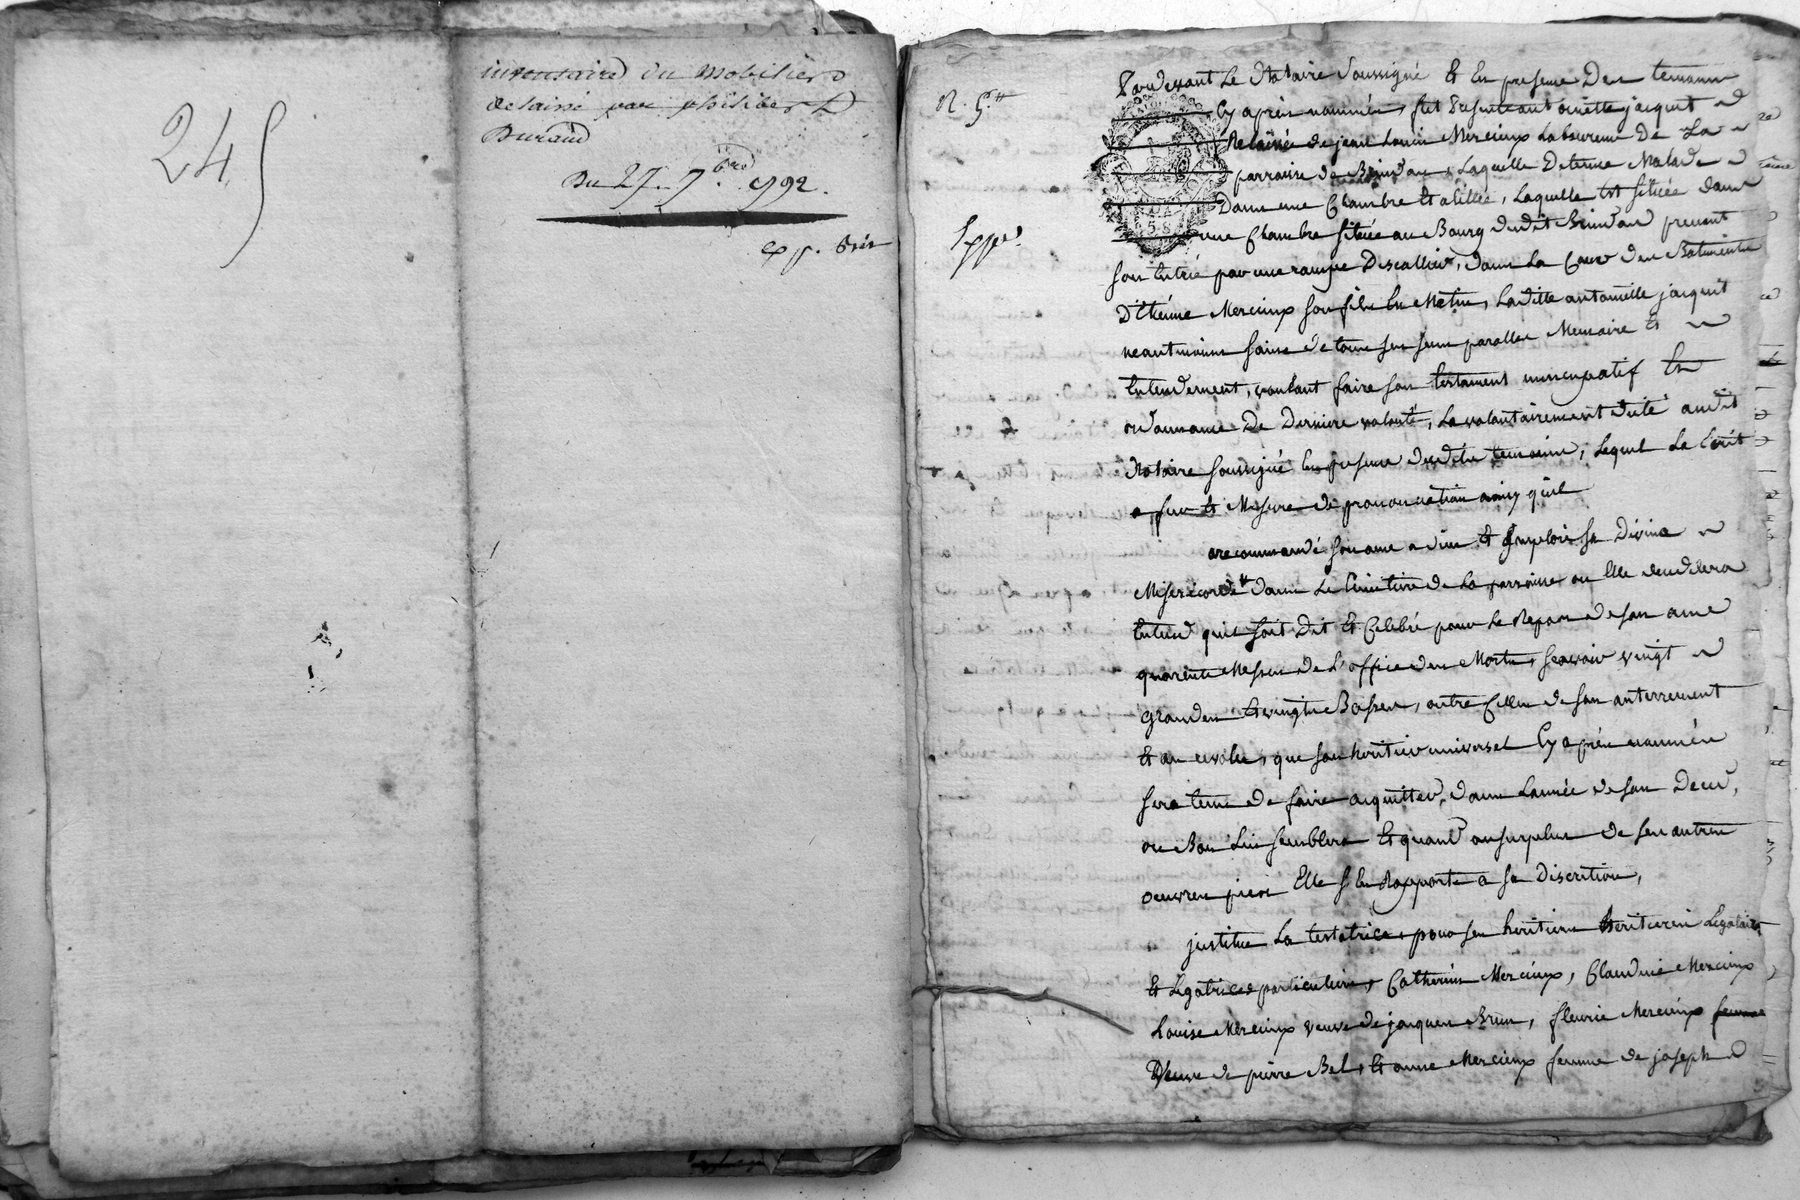 245
inventaire du mobilier
delaissé par philibert
Durand
Du 27. 7.bre 1792.
exp.
N. 5.
Exp.
Pardevant Le Notaire Soussigné Et En presence Des temoins
Cy après nommés, fut Presente antoinette jacquet
Relaissée de jean Louis Mercieux Laboureur De La
parroisse de, Laquelle Detenue Malade
Dans une Chambre Et alitée, Laquelle Est Située dans
une Chambre Située au Bourg dudit prenant
son Entrée par une rampe Descallier, dans La Cour des Batiments
D'Etienne Mercieux son fils Laditte antoinette jacquet
neantmoins saine de tous ses sens parolles Memoire Et
Entendement, voulant faire son testament nuncupatif En
ordonnance De Derniere volonté, La volontairement dicté audit
Notaire soussigné En presence desdits temoins, Lequel La Ecrit
a fur Et Mesure de prononciation ainsy quil
a recommandé son ame a dieu Et Imploré sa Divine
Misericorde dans Le Cimetiere de La parroisse ou Elle deceddera
Entend quil soit Dit Et Celebré pour Le Repos de son ame
quarente Messes de L'office des Morts, scavoir vingt
grandes Et vingt Basses, outre Celles de son enterrement
Et, que son heritier universel Cy après nommée
sera tenu de faire acquitter, dans Lannée de son Deces,
ou Bon Lui semblera Et quand au surplus de ses autres
oeuvres pies Elle s'En Rapporte a sa Discrétion,
justitue La testatrice, pour ses heritiers heritieres Legataires
Et Legatrices particulieres, Catherine Mercieux, Claudine Mercieux
Louise Mercieux veuve de jacques Brun, fleurie Mercieux femme
Veuve de pierre Bel, Et anne Mercieux femme de joseph